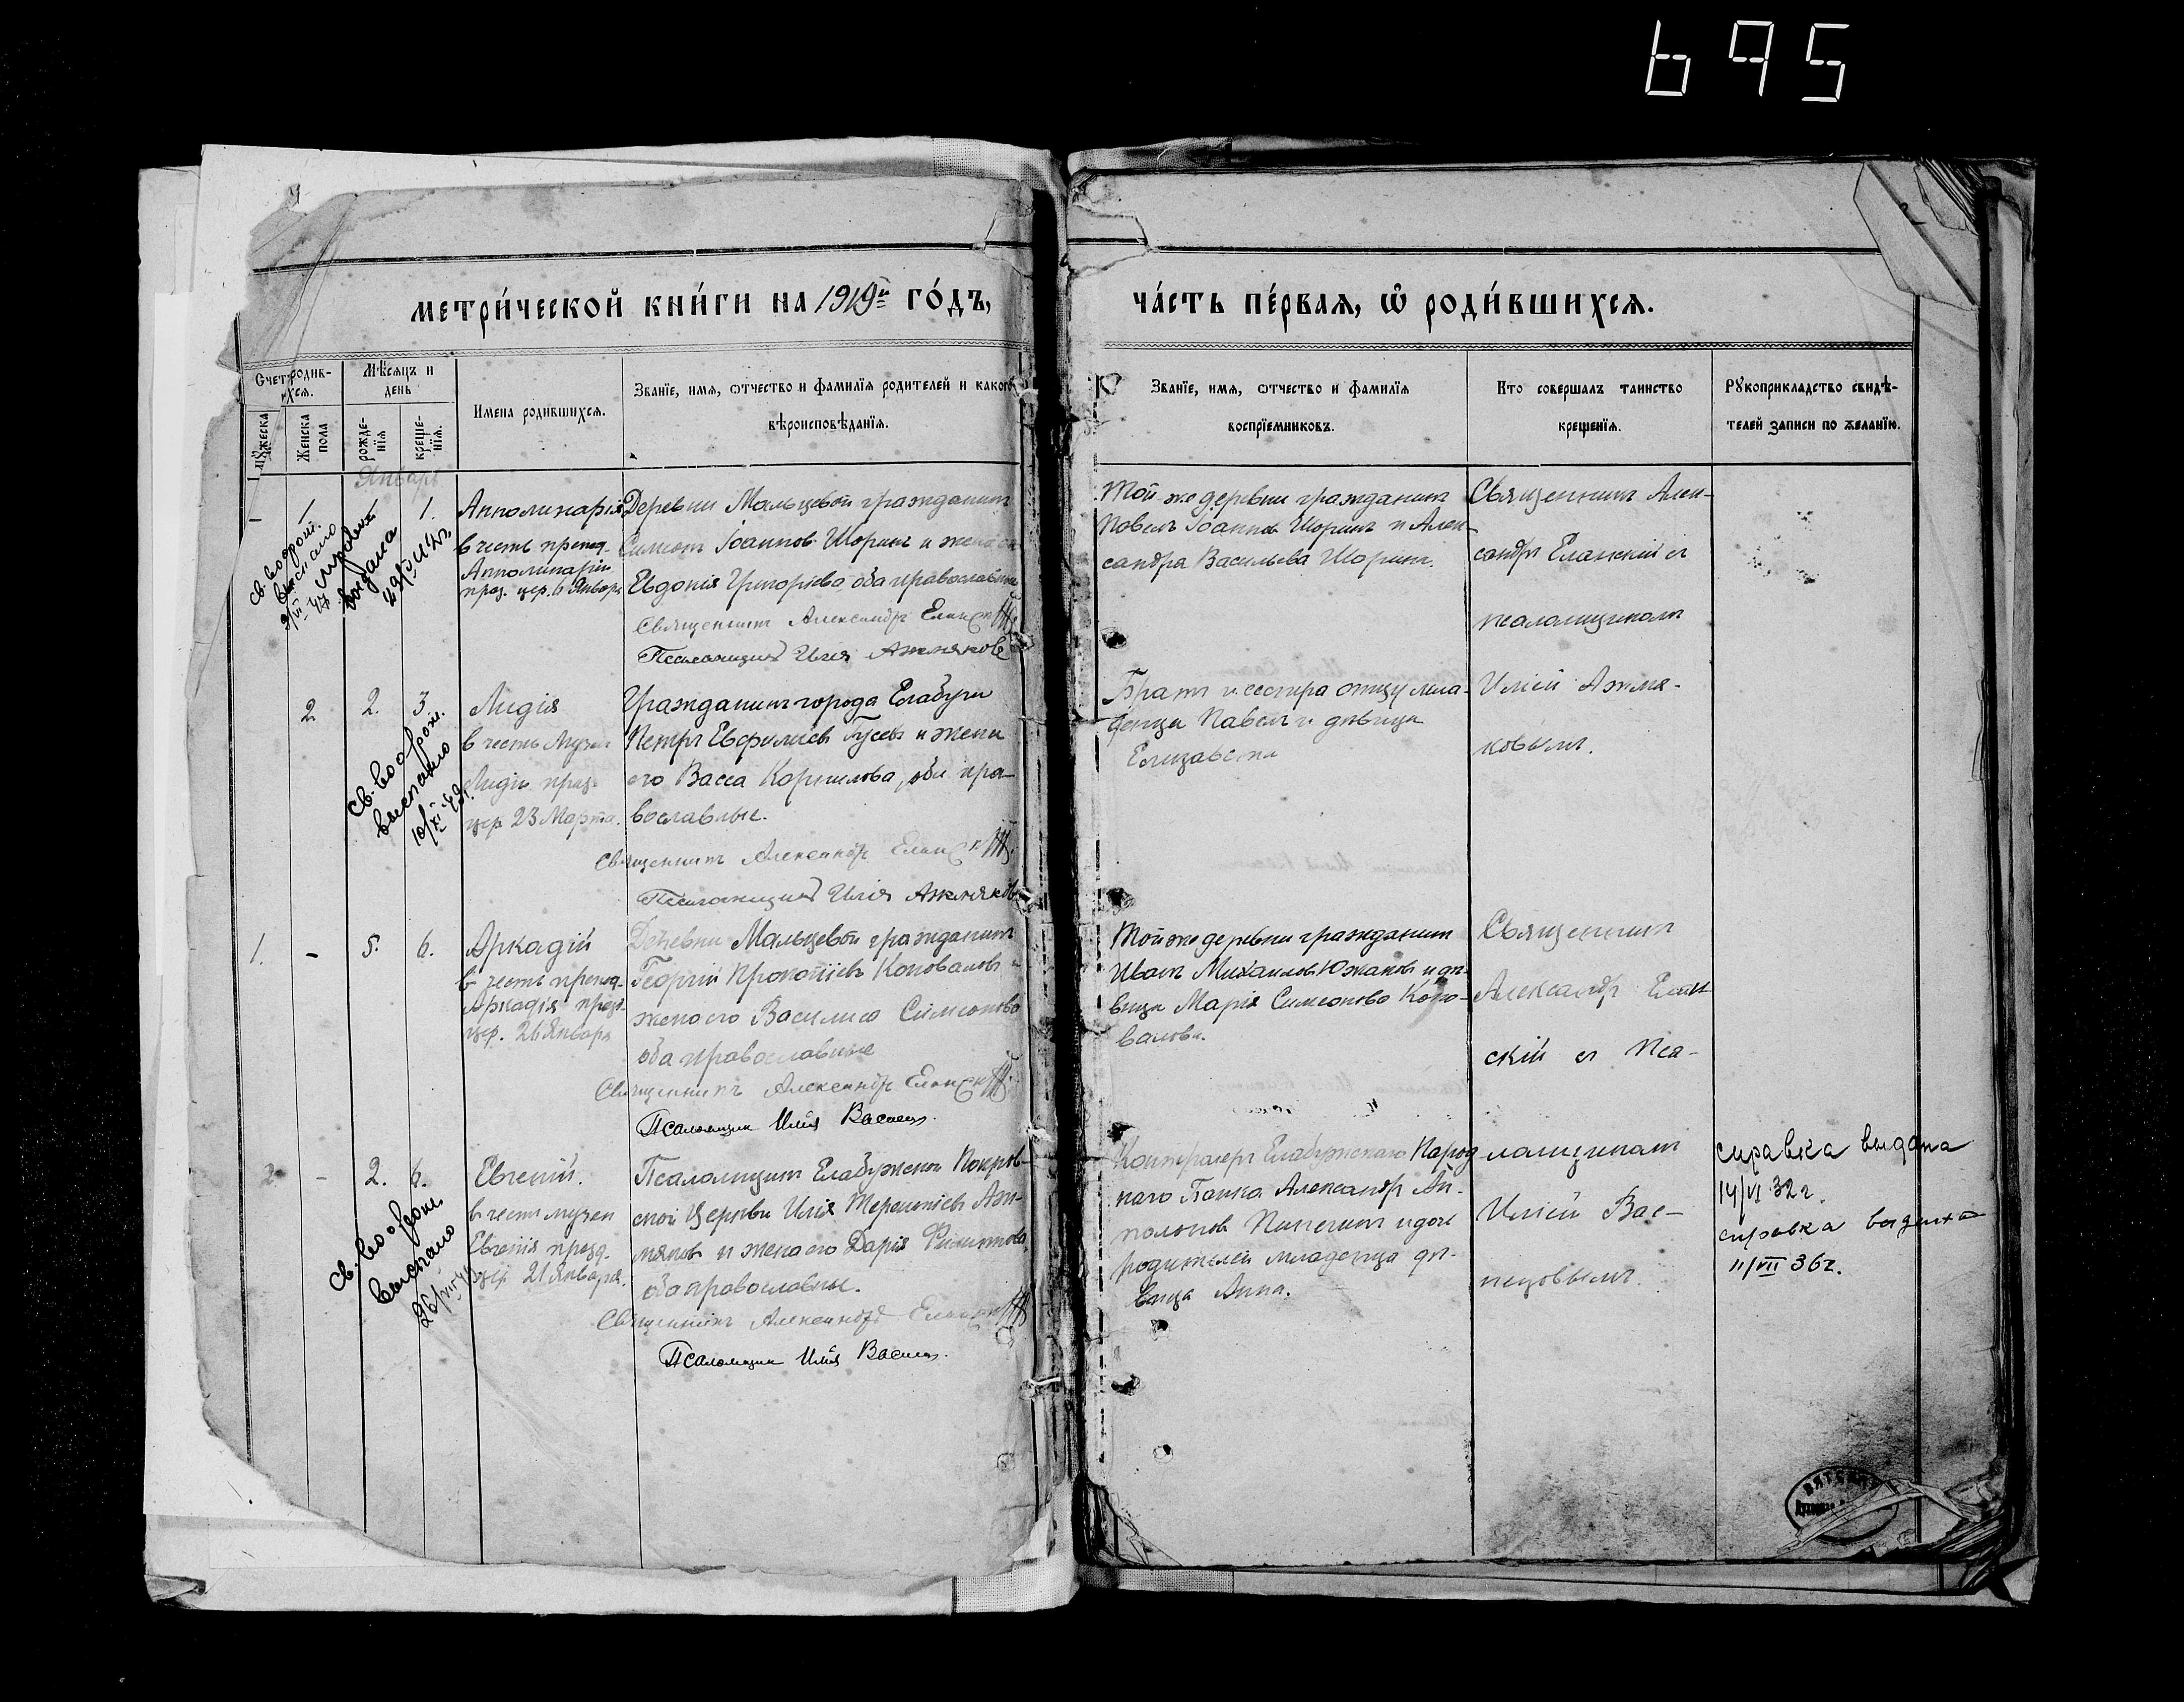 695
МЕТРИ́ЧЕСКОЙ КНИ́ГИ НА 1919й ГО́ДЪ,
ЧА́СТЬ ПЕ́РВАЯ, Ѡ҆ РОДИ́ВШИХСЯ.
Счетъ родив-
ихся.
Мужеска
Женска пола
Мѣсяцъ и
день
рожде-
нія
креще-
нія.
Имена родившихся.
Званїе, имя, ѡтчество и фамилїя родителей и какого
вѣроисповѣданїя.
Званїе, имя, ѡтчество и фамилїя
воспрїемниковъ.
Кто совершалъ таинство
крещенїя.
Рꙋкоприкладство свидѣ-
телей записи по желанїю.
Январь
- 1 1 1.
Апполинарія
в честь препод.
Апполинаріи
праз. цер. 6 Января
Деревни Мальцевой гражданинъ
Симеонъ Іоанновъ Шоринъ и жена его
Евдокія Григорьева, оба православные
Священникъ Александръ Еланскій
Псаломщикъ Илія Ажмяковъ
Той же деревни гражданинъ
Павелъ Іоанновъ Шоринъ и Алек-
сандра Васильева Шорина.
Священникъ Алек-
сандръ Еланскій съ
псаломщикомъ
Иліей Ажмя-
ковымъ.
св. во о рож.
выслано
справка
выдана
2 2. 3.
Лидія
в честь мучен.
Лидіи праз.
цер. 23 Марта.
Гражданинъ города Елабуги
Петръ Евфиміевъ Гусевъ и жена
его Васса Корнилова, оба пра-
вославные.
Священникъ Александръ Еланскій
Псаломщикъ Илія Ажмяковъ
Братъ и сестра отцу мла-
денца Павелъ и девица
Елизавета
св. во о рож.
выслано
10/XI 49г.
1. - 5. 6.
Аркадій
в честь препод.
Аркадія празд.
цер. 26 Января
Деревни Мальцевой гражданинъ
Георгій Прокопіевъ Коноваловъ и
жена его Василиса Симеонова
оба православные
Священникъ Александръ Еланскій
Псаломщик Илия Васнецов.
Той же деревни гражданинъ
Иванъ Михаиловъ Южаковъ и дѣ-
вица Марія Симеонова Коно-
валова.
Священникъ
Александръ Елан-
скій съ Пса-
ломщикомъ
Иліей Вас-
нецовымъ.
2 - 2. 6.
Евгеній.
в честь мучен
Евгенія празд.
цер. 21 Января.
Псаломщикъ Елабужской Покров-
ской Церкви Илія Терентіевъ Аж-
мяковъ и жена его Дарія Филиппова,
оба православны.
Священникъ Александръ Еланскій
Псаломщик Илия Васнецов.
Контролеръ Елабужскаго Народ
наго Банка Александръ Ап-
полоновъ Пинегинъ и дочь
родителей младенца дѣ-
вица Анна.
св. во о рож.
выслано
справка выдана
14/VI 32 г.
справка выдана
11/VII 36г.